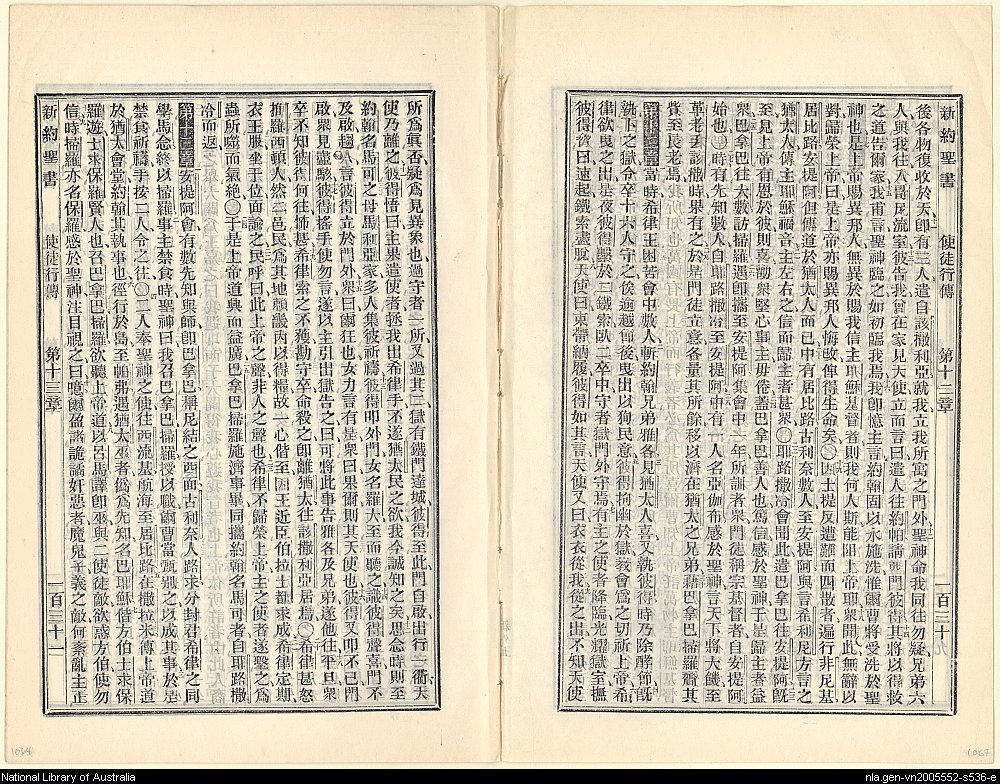 新約聖書 使徒行傳 第十二章
後各物復收於天、即有三人、遣自該撒利亞就我、立我所寓之門外、聖神命我同往勿疑、兄弟六
人與我往、入哥尼流室、彼告我曾在家見天使立而言曰、遣人往約帕、請西門彼得、其將以得救
之道告爾家、我甫言、聖神臨之、如初臨我焉、我卽憶主言、約翰固以水施洗、惟爾曹將受洗於聖
神也、是上帝賜異邦人、無異於賜我信主耶穌基督者、則我何人斯、能阻上帝耶、衆聞此、無辭以
對、歸榮上帝曰、是上帝亦賜異邦人悔改、俾得生命矣、○因士提反遭難而四散者、遍行非尼基
居比路安提阿、但傳道於猶太人而已、中有居比路古利奈數人、至安提阿、與言希利尼方言之
猶太人、傳主耶穌福音、主左右之、信而歸主者甚衆、○耶路撒冷會聞此、遣巴拿巴往安提阿、旣
至、見上帝有恩於彼則喜、勸衆堅心事主毋倦、蓋巴拿巴善人也、篤信、感於聖神、于是歸主者益
衆、巴拿巴往大數訪掃羅、遇卽攜至安提阿、集會中一年、所訓者衆、門徒稱宗基督者、自安提阿
始也、○時有先知數人、自耶路撒冷至安提阿、中有一人名亞伽布、感於聖神、言天下將大饑、至
革老丟該撒時果有之、於是門徒立意、各量其所餘、移以濟在猶太之兄弟、藉巴拿巴掃羅齎其
貲至長老焉、
第十二章 當時希律王困苦會中數人、斬約翰兄弟雅各、見猶太人喜、又執彼得、時乃除酵節、旣
執下之獄、令卒十六人守之、俟逾越節後曳出、以狥民意、彼得拘幽於獄、敎會爲之切祈上帝、希
律欲曳之出、是夜彼得繫於二鐵索、臥二卒中、守者獄門外守焉、有主之使者降臨、光耀獄室、撫
彼得脅曰、速起、鐵索盡脫、天使曰、束帶納履、彼得如其言、天使又曰、衣衣從我、從之出、不知天使
新約聖書 使徒行傳 第十三章
所爲眞否、疑爲見異象也、過守者一所、又過其二、獄有鐵門達城、彼得至此、門自啟、出行一衢、天
使乃離之、彼得憶曰、主果遣使者、拯我出希律手、不遂猶太民之欲、我今誠知之矣、思念時、則至
約翰名馬可之母馬利亞家、多人集彼祈禱、彼得叩外門、女名羅大至而聽之、識彼得聲、喜、門不
及啟、趨入言彼得立於門外、衆曰、爾狂也、女力言有是、衆曰、果爾、則其天使也、彼得又叩不已、門
啟、衆見憃駭、彼得搖手使勿言、遂以主引出獄告之、曰、可將此事告雅各及兄弟、遂他往、平旦、衆
卒不知彼得何往、怖甚、希律索之不獲、勘守卒、命殺之、卽離猶太、往該撒利亞居焉、○希律甚怒
推羅西頓人、然二邑民爲其地賴畿內以得糧、故一心偕至、因王近臣伯拉士都求成、希律定期、
衣王服坐于位、面諭之、民呼曰、此上帝之聲、非人之聲也、希律不歸榮上帝、主之使者遂擊之、爲
蟲所囓而氣絕、○于是上帝道興而益廣、巴拿巴掃羅施濟事畢、同攜約翰名馬可者、自耶路撒
冷而返、
第十三章 安提阿會有數先知與師、卽巴拿巴、稱尼結之西面、古利奈人路求、分封君希律之同
學馬念、終以掃羅、事主禁食時、聖神曰、我召巴拿巴掃羅、授以職、爾曹當甄別之、以成其事、於是
禁食祈禱、手按二人、令之往、○二人奉聖神之使、往西流基、航海至居比路、在撒拉米傳上帝道
於猶太會堂、約翰其執事也、徑行於島、至帕弗、遇猶太巫者、僞爲先知、名巴耶穌、偕方伯士求保
羅遊、士求保羅賢人也、召巴拿巴掃羅、欲聽上帝道、以呂馬譯卽巫、與二使徒敵、欲惑方伯使勿
信、時掃羅亦名保羅、感於聖神、注目視之、曰、噫、爾盈諸詭譎奸惡者、魔鬼子、義之敵、何紊亂主正
National Library of Australia
nla.gen-vn2005552-s536-e